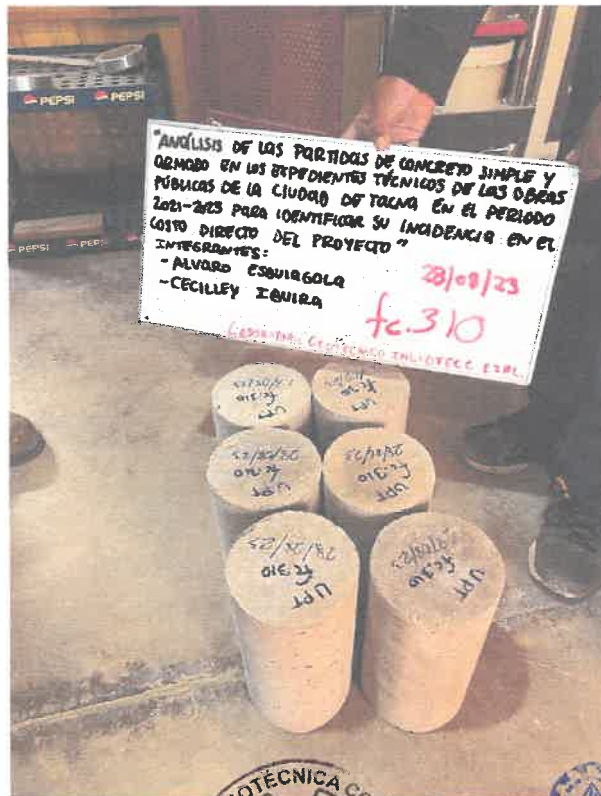 PEPSI PEPSI
PEPSI PEPSI
"ANÁLISIS DE LAS PARTIDAS DE CONCRETO SIMPLE Y
ARMADO EN LOS EXPEDIENTES TÉCNICOS DE LAS OBRAS
PÚBLICAS DE LA CIUDAD DE TACNA EN EL PERIODO
2021-2023 PARA IDENTIFICAR SU INCIDENCIA EN EL
COSTO DIRECTO DEL PROYECTO"
INTEGRANTES:
- ALVARO ESQUIAGOLA
- CECILLEY
28/08/23
fc.310
UPT
fc.310
UPT
fc.310
UPT
fc.310
UPT
fc.310
UPT
fc.310
UPT